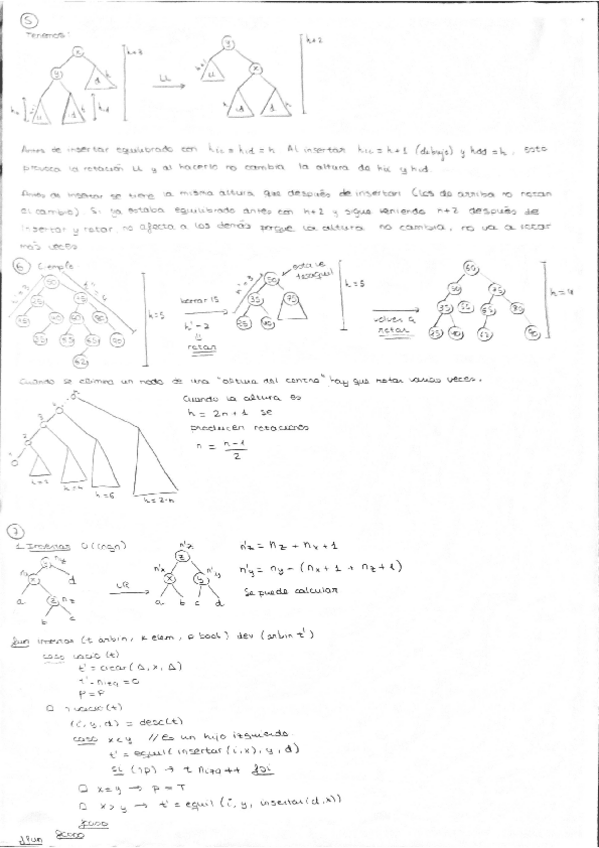 5
Tenemos:
x
h+3
y
LL
y
h+2
x
Antes de insertar equilibrado con hii = hid = h. Al insertar hii = h+1 (dibujo) y hdd = h, esto
provoca la rotación LL y al hacerlo no cambia la altura de hii y hid.
Antes de insertar se tiene la misma altura que después de insertar (los de arriba no notan
el cambio). Si ya estaba equilibrado antes con h+2 y sigue teniendo h+2 después de
insertar y rotar, no afecta a los demás porque la altura no cambia, no va a rotar
más veces
6 Ejemplo
h=5
borrar 15
rotar
h=5
volver a
rotar
h=4
Cuando se elimina un nodo de una "altura del centro" hay que rotar varias veces.
Cuando la altura es
h = 2n + 1 se
producen rotaciones
n = h-1
2
h=2
h=4
h=6
h=2·n
7
1. Insertar O(logn)
n'z = nz + nx + 1
n'y = ny - (nx + 1 + nz + 1)
Se puede calcular
LR
a b c d
fun insertar (t arbin, x elem, p bool) dev (arbin t')
caso vacio(t)
t' = crear(Δ, x, Δ)
t'.nizq = 0
p = F
¬vacio(t)
(i, y, d) = desc(t)
caso x<y // Es un hijo izquierdo
t' = equil(insertar(i,x), y, d)
si (¬p) → t.nizq++ fsi
x=y → p = T
x>y → t' = equil(i, y, insertar(d,x))
fcaso
fcaso
ffun